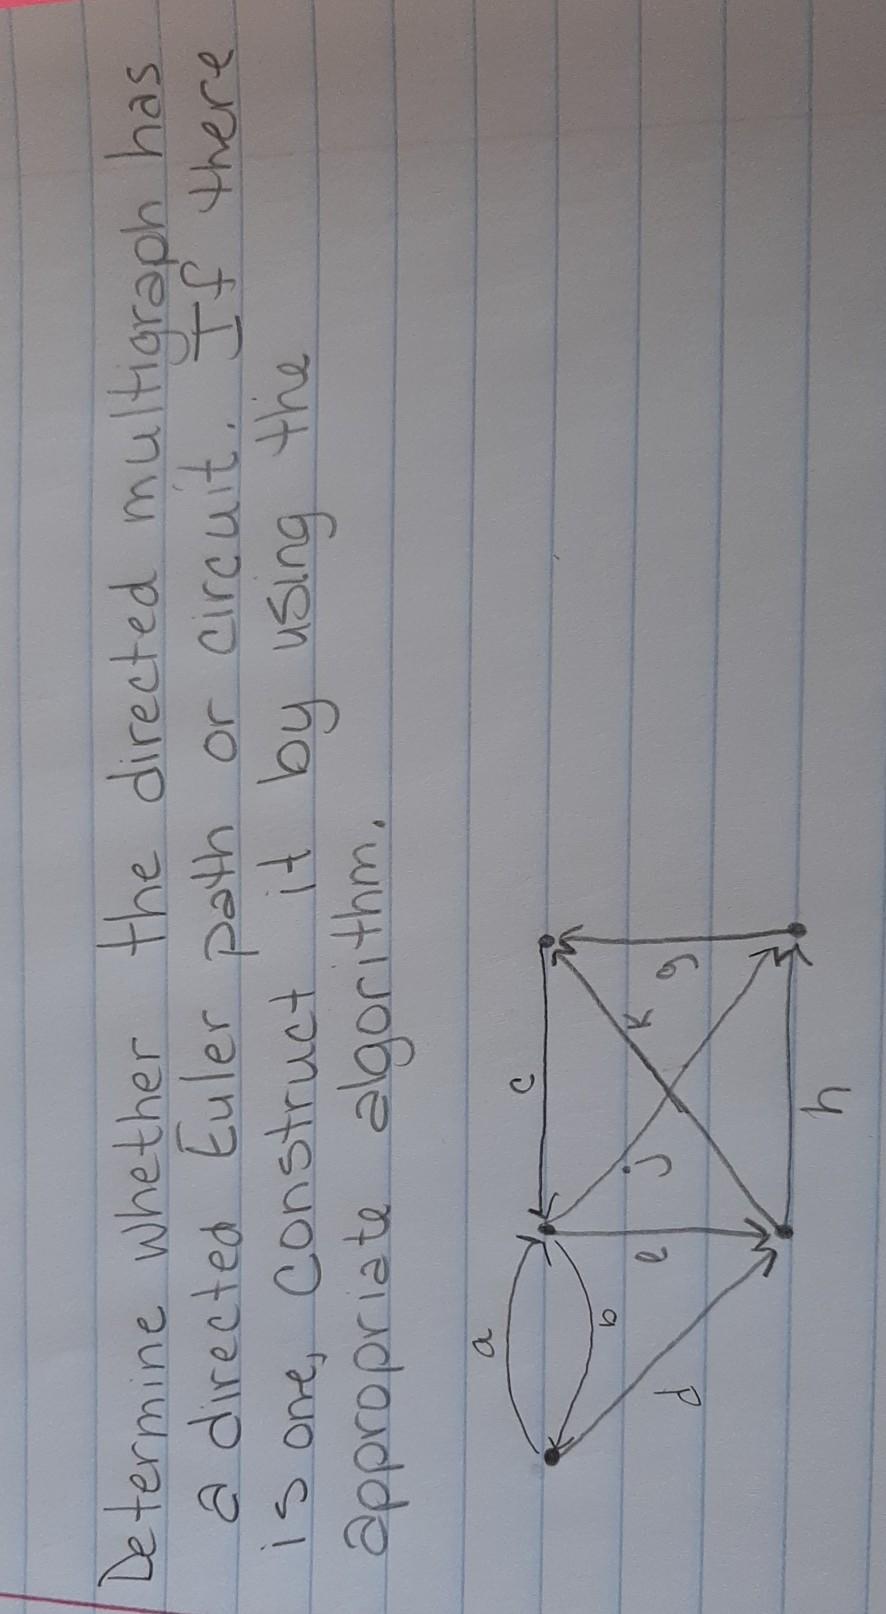 Determine whether the directed multigraph has
a directed Euler path or circuit. If there
is one, construct it by using the
appropriate algorithm.
a
c
b
e
j
k
g
d
h